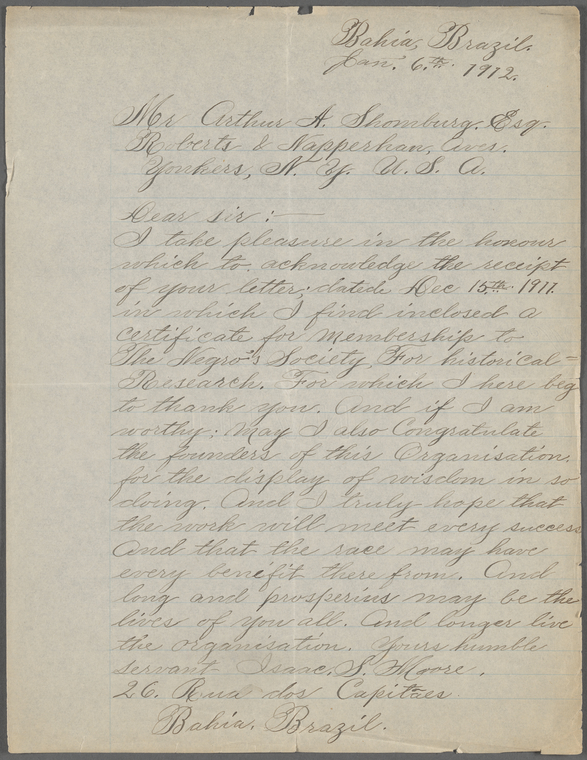 Bahia, Brazil.
Jan. 6.th. 1912.
Mr Arthur A. Shomburg. Esq.
Roberts & Napperhan, Aves.
Yonkers, N. Y. U. S. A.
Dear sir :—
I take pleasure in the honour
which to acknowledge the receipt
of your letter; dated Dec 15th. 1911.
in which I find inclosed a
certificate for membership to
The Negro's Society For historical=
Research. For which I here beg
to thank you. And if I am
worthy: may I also Congratulate
the founders of this Organisation.
for the display of wisdom in so
doing. And I truly hope that
the work will meet every success
And that the race may have
every benefit there from. And
long and prosperius may be the
lives of you all. And longer live
the organisation. Yours humble
servant Isaac. S. Moore.
26. Rua dos Capitães
Bahia. Brazil.